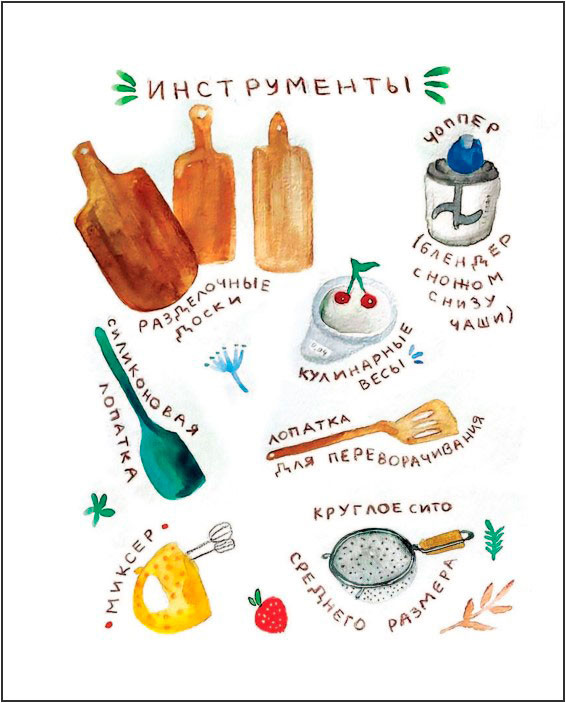 ИНСТРУМЕНТЫ
РАЗДЕЛОЧНЫЕ
ДОСКИ
ЧОППЕР
(БЛЕНДЕР
С НОЖОМ
СНИЗУ
ЧАШИ)
КУЛИНАРНЫЕ
ВЕСЫ
СИЛИКОНОВАЯ
ЛОПАТКА
ЛОПАТКА
ДЛЯ ПЕРЕВОРАЧИВАНИЯ
МИКСЕР
КРУГЛОЕ СИТО
СРЕДНЕГО РАЗМЕРА